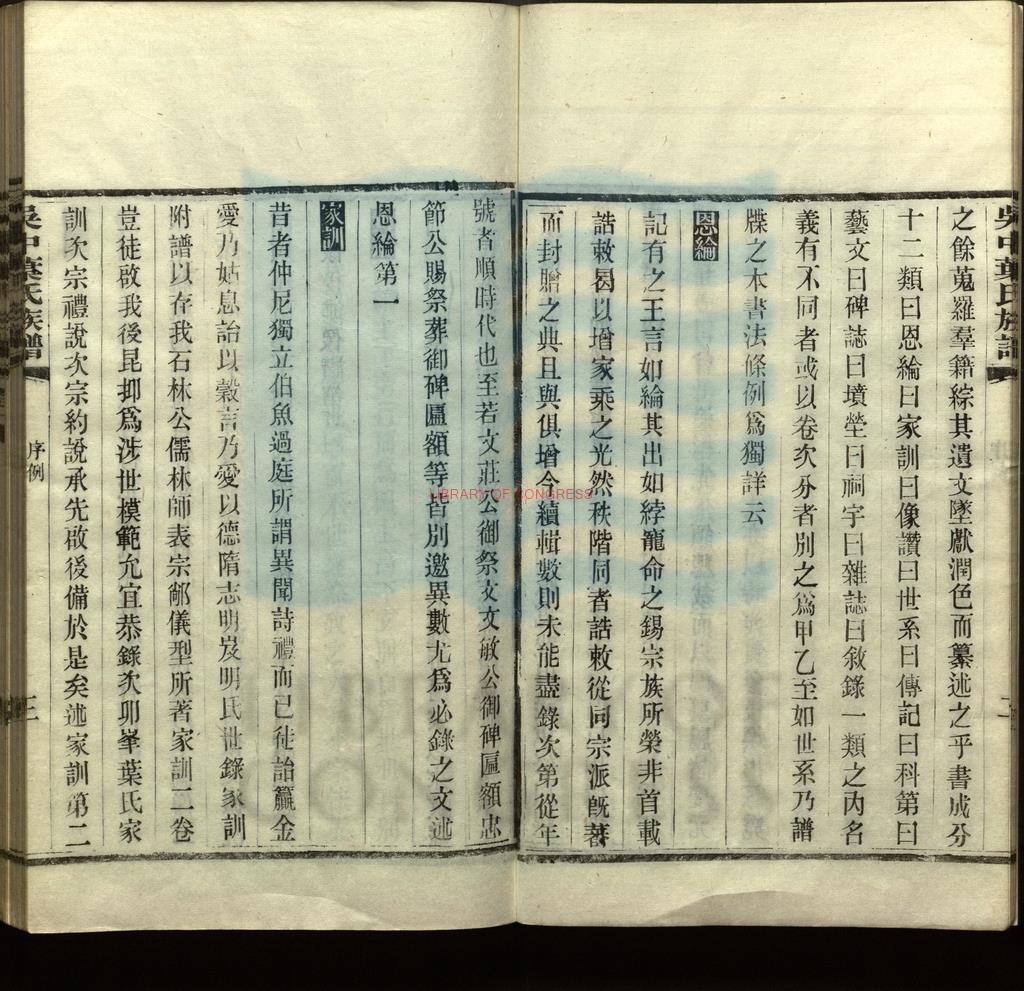 之餘蒐羅羣籍綜其遺文墜獻潤色而纂述之乎書成分
十二類曰恩綸曰家訓曰像讚曰世系曰傳記曰科第曰
藝文曰碑誌曰墳塋曰祠宇曰雜誌曰敘錄一類之內名
義有不同者或以卷次分者別之爲甲乙至如世系乃譜
牒之本書法條例爲獨詳云
恩綸
記有之王言如綸其出如綍寵命之錫宗族所榮非首載
誥敕曷以增家乘之光然秩階同者誥敕從同宗派旣蕃
而封贈之典且與俱增今續輯數則未能盡錄次第從年
號者順時代也至若文莊公御祭文文敏公御碑匾額忠
節公賜祭葬御碑匾額等皆別邀異數尤爲必錄之文述
恩綸第一
家訓
昔者仲尼獨立伯魚過庭所謂異聞詩禮而已徒詒籯金
愛乃姑息詒以穀言乃愛以德隋志明岌明氏世錄家訓
附譜以存我石林公儒林師表宗鄉儀型所著家訓二卷
豈徒啟我後昆抑爲涉世模範允宜恭錄次卯峯葉氏家
訓次宗禮說次宗約說承先啟後備於是矣述家訓第二
吳中葉氏族譜
序例
LIBRARY OF CONGRESS